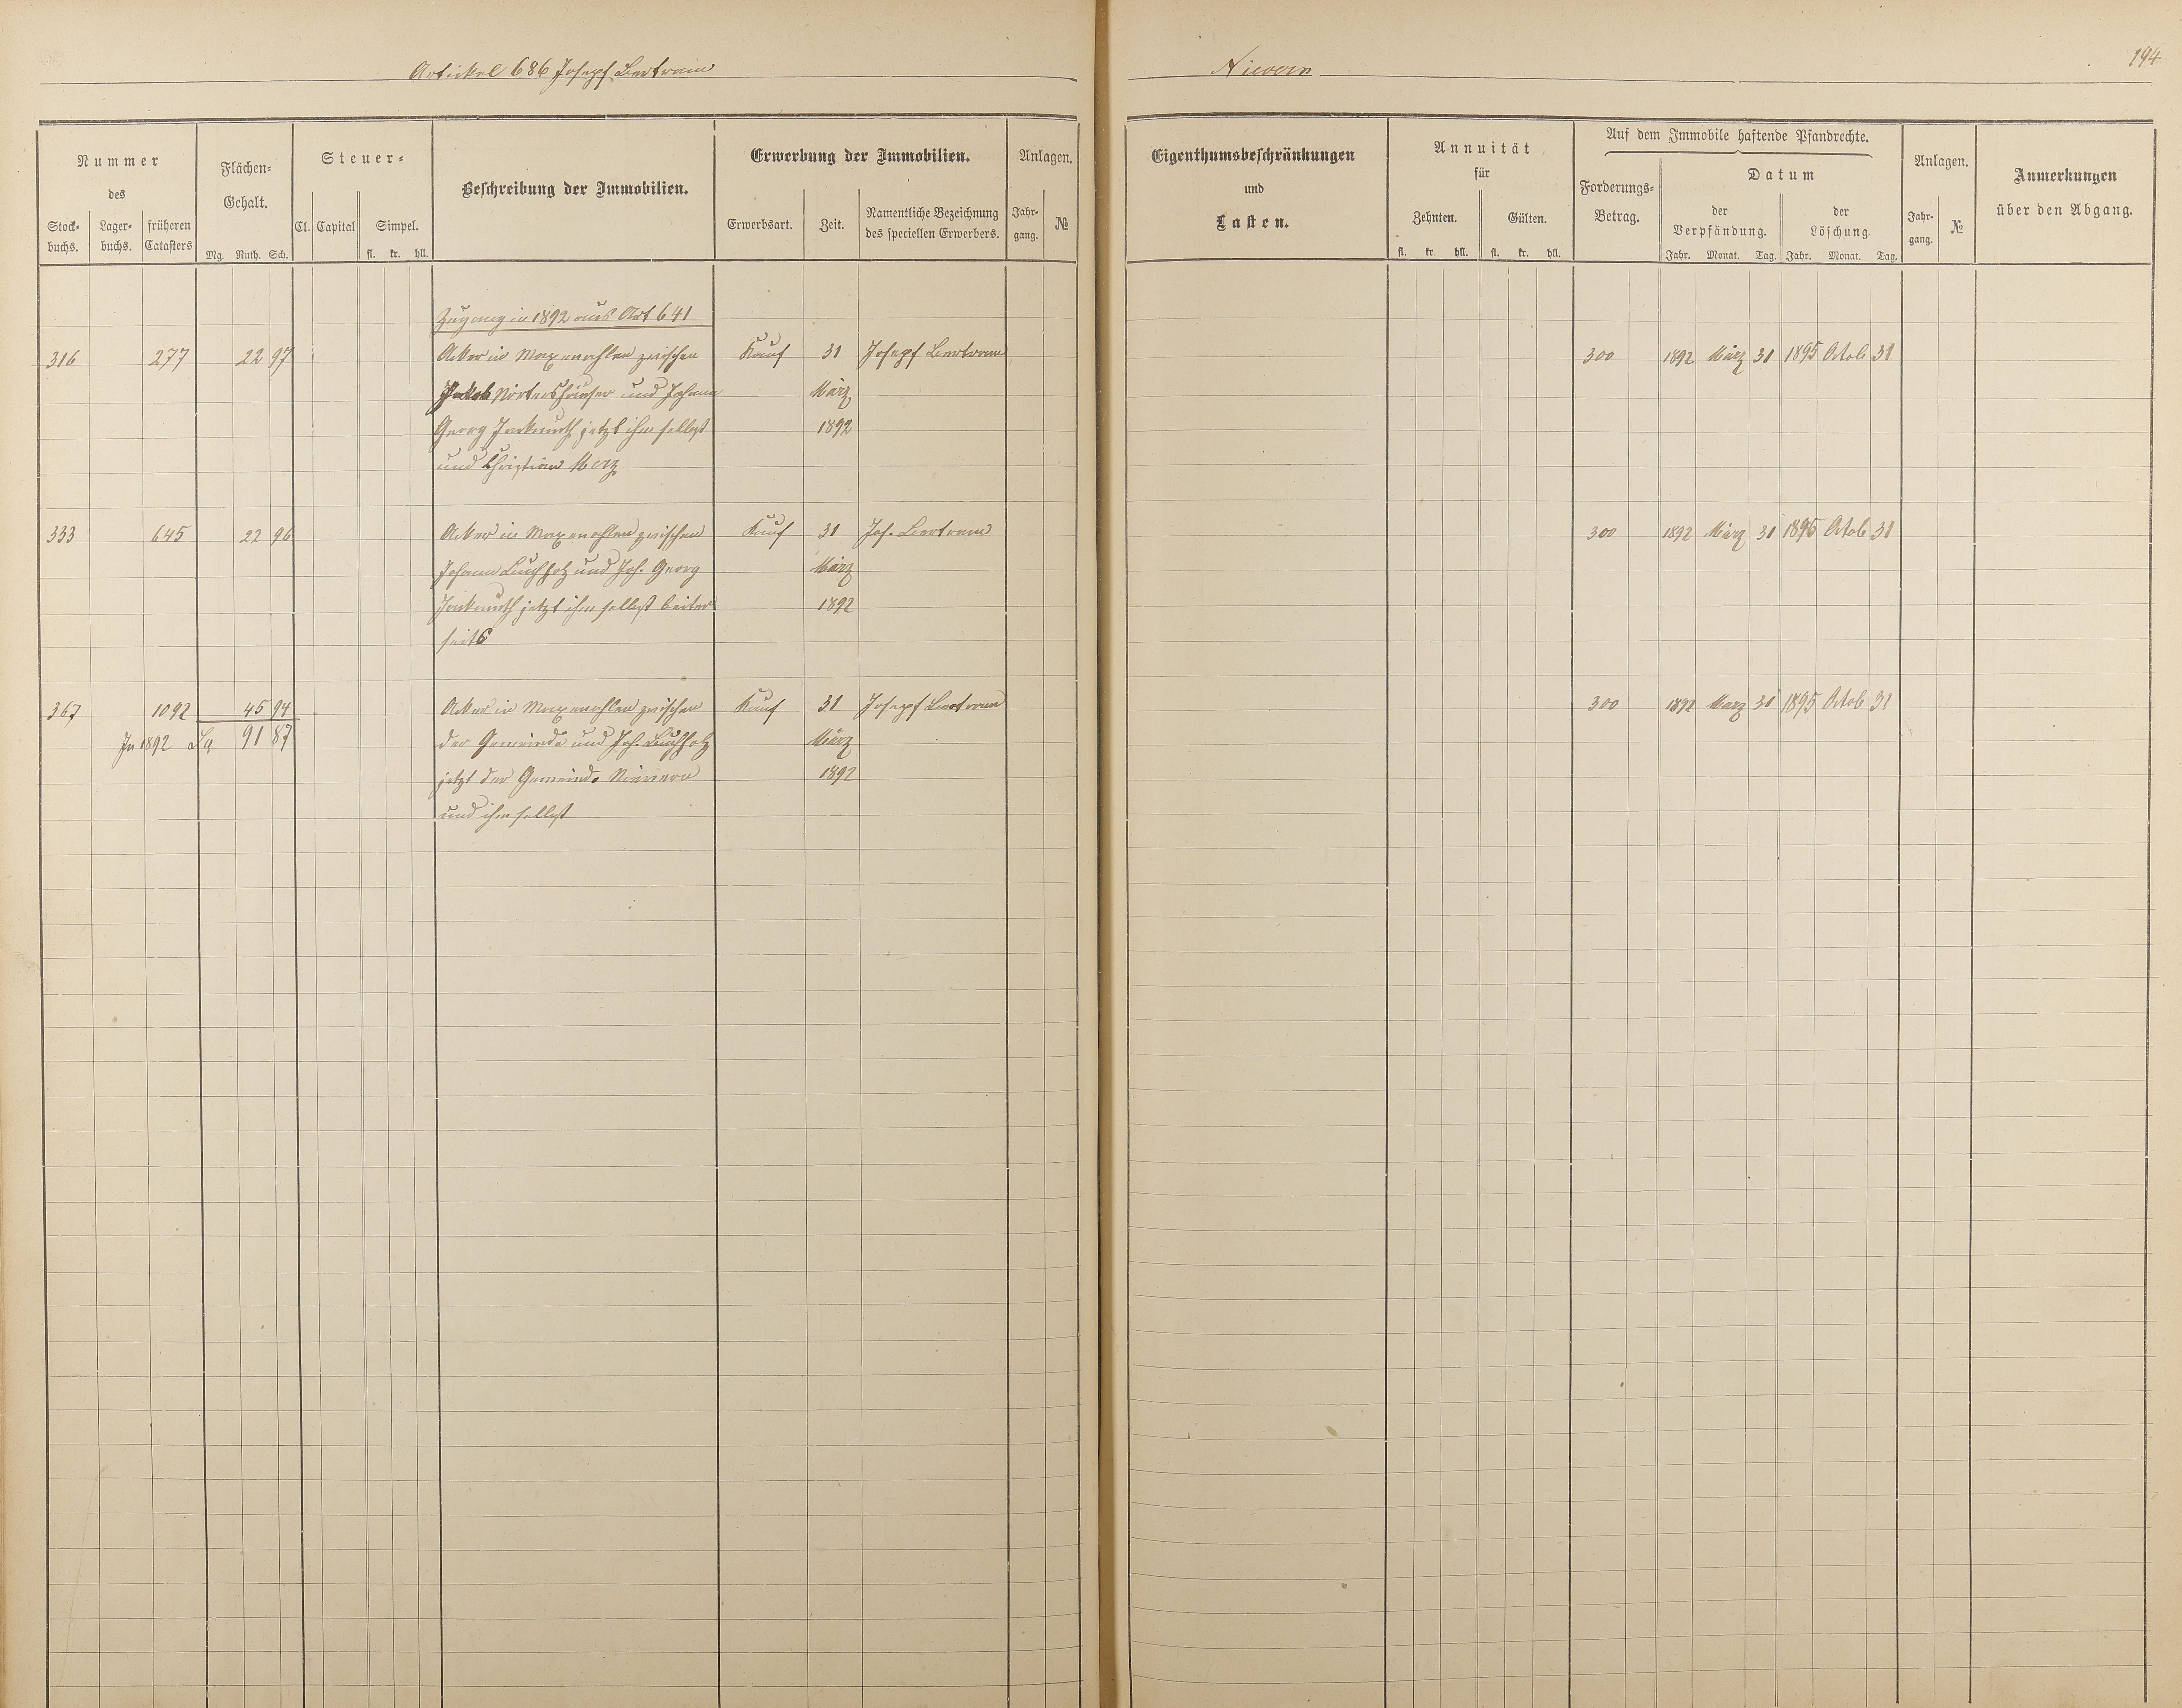 Artickel 686 Josepf Bertram
Nievern
194
Nummer
des
Stock-
buchs.
Lager-
buchs.
früheren
Catasters
Flächen-
Gehalt.
Mg. Ruth. Sch.
Steuer-
Cl. Capital Simpel.
fl. kr. hll.
Beschreibung der Immobilien.
Erwerbung der Immobilien.
Erwerbsart. Zeit.
Namentliche Bezeichnung
des speciellen Erwerbers.
Anlagen.
Jahr-
gang.
№
Eigenthumsbeschränkungen
und
Lasten.
Annuität
für
Zehnten. Gülten.
fl. kr. hll. fl. kr. hll.
Auf dem Immobile haftende Pfandrechte.
Forderungs-
Betrag.
Datum
der
Verpfändung.
der
Löschung.
Jahr. Monat. Tag. Jahr. Monat. Tag.
Anlagen.
Jahr-
gang.
№
Anmerkungen
über den Abgang.
Zugang in 1892 aus Art 641
316 277 22 97 Acker in zwischen Kauf 31 Josepf Bertram 300 1892 März 31 1895 Octob 31
Jakob Nörtershäuser und Johann März
Georg jetzt ihm selbst 1892
und Christian Merz
333 645 22 96 Acker in zwischen Kauf 31 Jos. Bertram 300 1892 März 31 1895 Octob 31
Johann Buchholz und Joh. Georg März
jetzt ihm selbst beiter 1892
seits
367 1092 45 94 Acker in zwischen Kauf 31 Josepf Bertram 300 1892 März 31 1895 Octob 31
In 1892 Sa 91 87 der Gemeinde und Joh. Buchholz März
jetzt der Gemeinde Nievern 1892
und ihm selbst